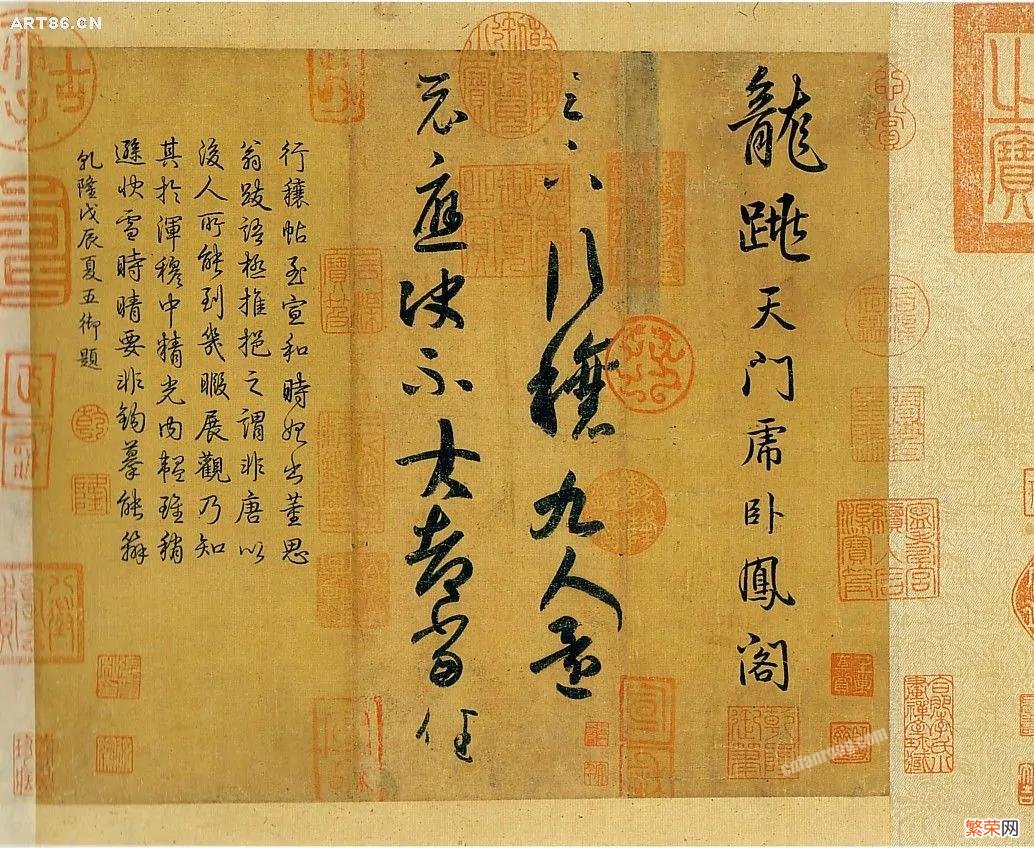 龍跳天門虎卧鳳閣
足下行穰九人還
示應決不大都當佳
行穰帖至宣和時始出董思
翁跋語極推挹之謂非唐以
後人所能到幾暇展觀乃知
其於渾穆中精光內韞雖稍
遜快雪時晴要非鉤摹能辦
乾隆戊辰夏五御題
ART86.CN
之寶
繁荣网